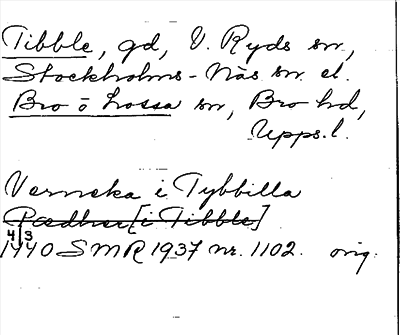 Tibble, gd, V. Ryds sn,
Stockholms-Näs sn el.
Bro o Lossa sn, Bro hd,
Upps.l.
Verneka i Tybbilla
Pædher [i Tibble]
4/3
1440 SMR 1937 nr. 1102. orig.